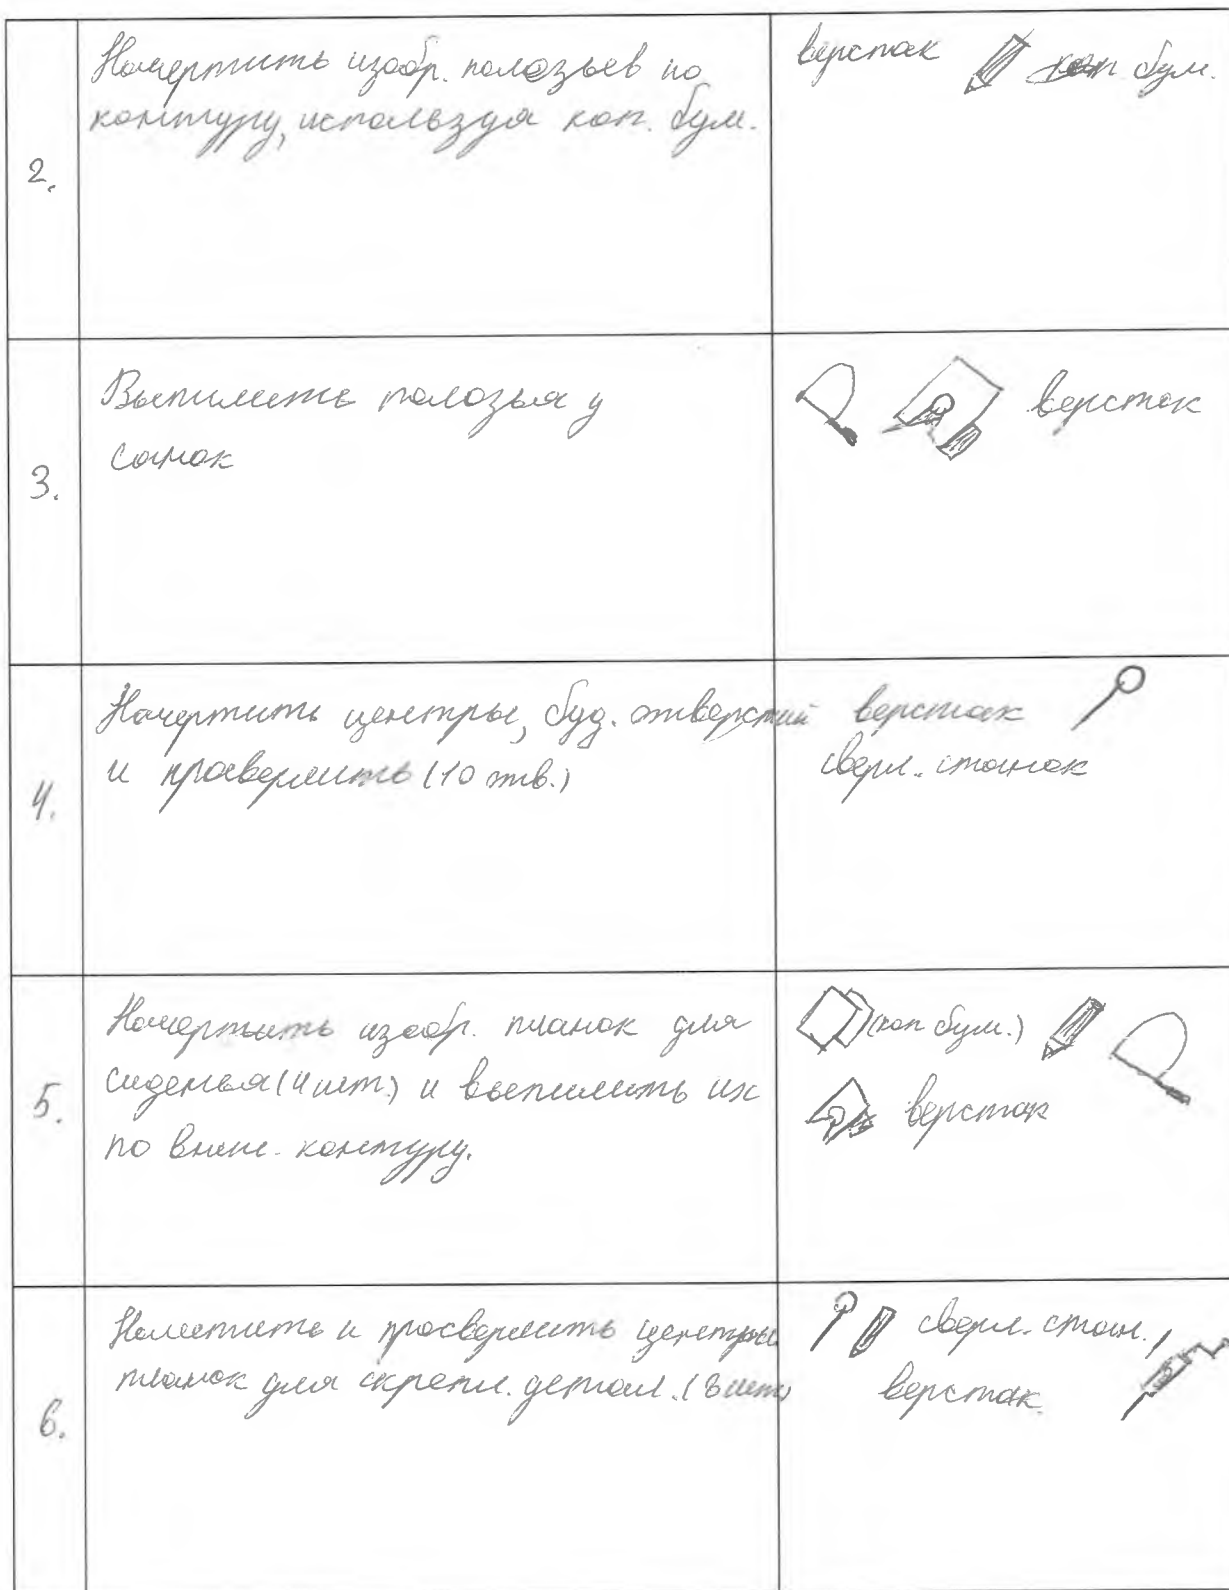 2.
Начертить изобр. полозьев по
контуру, используя коп. бум.
верстак коп бум.
3.
Выпилить полозья у
санок
верстак
4.
Начертить центры, буд. отверстий
и просверлить (10 отв.)
верстак
сверл. станок
5.
Начертить изобр. планок для
сиденья (4 шт.) и выпилить их
по внеш. контуру.
(коп бум.)
верстак
6.
Наметить и просверлить центры
планок для скрепл. детал. (8 шт)
сверл. стан.,
верстак.